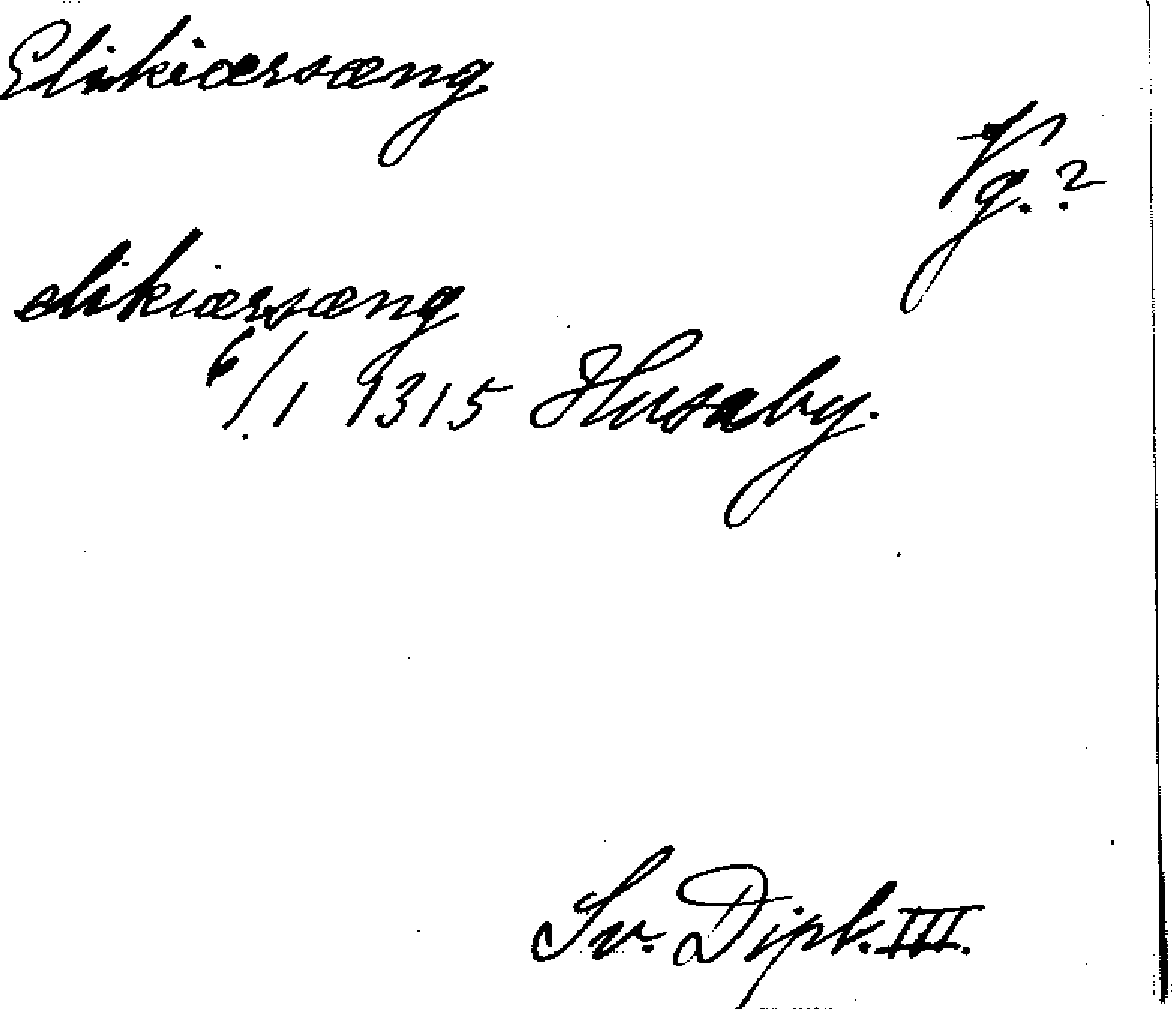 Elikiærsæng
Vg.?
elikiærsæng
6/1 1315 Husaby.
Sv. Dipl. III.